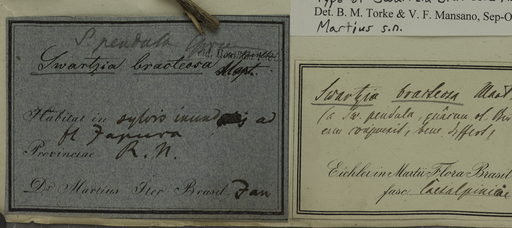 S. pendula
Swartzia bracteosa
Mart.
Habitat in sylvis inund ad
fl Japura
Provinciae R. N.
Dr Martius Iter Brasil Jan
Det. B. M. Torke & V. F. Mansano, Sep-O
Martius s.n.
Swartzia bracteosa Mart.
(a Sw. pendula,
bene differt,
Eichler in Martii Flora Brasil
fasc Caesalpiniae